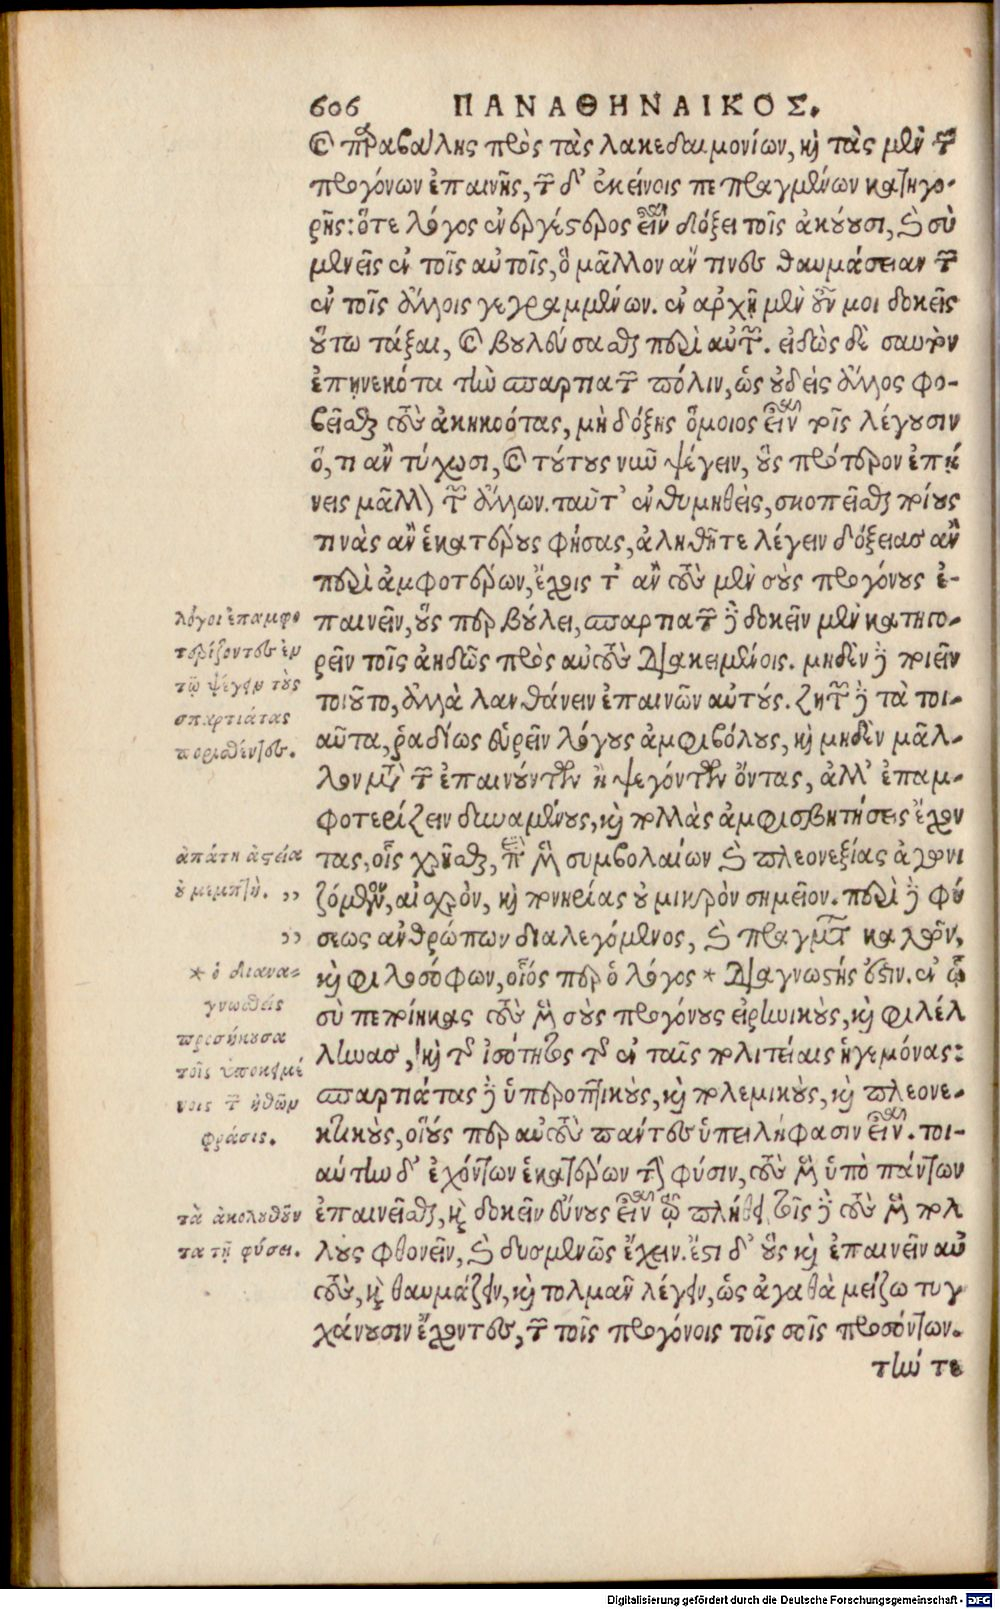 606 ΠΑΝΑΘΗΝΑΙΚΟΣ.
καὶ παραβάλῃς πρὸς τὰς λακεδαιμονίων, καὶ τὰς μὲν τῶν
προγόνων ἐπαινῇς, τῶν δ' ἐκείνοις πεπραγμένων κατηγο-
ρῇς: ὅτε λόγος ἐνεργέστερος εἶναι δόξει τοῖς ἀκούουσι, καὶ σὺ
μενεῖς ἐν τοῖς αὐτοῖς, ὃ μᾶλλον ἄν τινες θαυμάσειαν τῶν
ἐν τοῖς ἄλλοις γεγραμμένων. ἐν ἀρχῇ μὲν οὖν μοι δοκεῖς
οὕτω τάξαι, καὶ βουλεύσασθαι περὶ αὐτῶν. εἰδὼς δὲ σαυτὸν
ἐπῃνεκότα τὴν σπαρτιατῶν πόλιν, ὡς οὐδεὶς ἄλλος φο-
βεῖσθαι τοὺς ἀκηκοότας, μὴ δόξῃς ὅμοιος εἶναι τοῖς λέγουσιν
ὅ,τι ἂν τύχωσι, καὶ τούτους νῦν ψέγειν, οὓς πρότερον ἐπῄ
νεις μᾶλλον τῶν ἄλλων. ταῦτ' ἐνθυμηθεὶς, σκοπεῖσθαι ποίους
τινὰς ἂν ἑκατέρους φήσας, ἀληθῆτε λέγειν δόξειας ἂν
περὶ ἀμφοτέρων, ἔχοις τ' ἂν τοὺς μὲν σοὺς προγόνους ἐ-
παινεῖν, οὕς περ βούλει, σπαρτιατῶν δὲ δοκεῖν μὲν κατηγο-
ρεῖν τοῖς ἀηδῶς πρὸς αὐτοὺς διακειμένοις. μηδὲν δὲ ποιεῖν
τοιοῦτο, ἀλλὰ λανθάνειν ἐπαινῶν αὐτούς. ζητῶν δὲ τὰ τοι-
αῦτα, ῥᾳδίως εὑρεῖν λόγους ἀμφιβόλους, καὶ μηδὲν μᾶλ-
λον μετὰ τῶν ἐπαινούντων ἢ ψεγόντων ὄντας, ἀλλ' ἐπαμ-
φοτερίζειν δυναμένους, καὶ πολλὰς ἀμφισβητήσεις ἔχον
τας, οἷς χρῆσθαι, περὶ μὲν συμβολαίων καὶ πλεονεξίας ἀγωνι
ζόμενον, αἰσχρὸν, καὶ πονηρίας οὐ μικρὸν σημεῖον. περὶ δὲ φύ
σεως ἀνθρώπων διαλεγόμενος, καὶ πραγμάτων καλὸν,
καὶ φιλοσόφων, οἷός περ ὁ λόγος * διαγνωστής ἐστιν. ἐν ᾧ
σὺ πεποίηκας τοὺς μὲν σοὺς προγόνους εἰρηνικοὺς, καὶ φιλέλ
ληνας, καὶ τῆς ἰσότητος τῆς ἐν ταῖς πολιτείαις ἡγεμόνας:
σπαρτιάτας δὲ ὑπεροπτικοὺς, καὶ πολεμικοὺς, καὶ πλεονε-
κτικοὺς, οἵους περ αὐτοὺς πάντες ὑπειλήφασιν εἶναι. τοι-
αύτην δ' ἐχόντων ἑκατέρων τὴν φύσιν, τοὺς μὲν ὑπὸ πάντων
ἐπαινεῖσθαι, καὶ δοκεῖν εὔνους εἶναι τῷ πλήθει, τοῖς δὲ τοὺς μὲν πολ
λοὺς φθονεῖν, καὶ δυσμενῶς ἔχειν. ἔστι δ' οὓς καὶ ἐπαινεῖν αὐ
τοὺς, καὶ θαυμάζειν, καὶ τολμᾶν λέγειν, ὡς ἀγαθὰ μείζω τυγ
χάνουσιν ἔχοντες, τῶν τοῖς προγόνοις τοῖς σοῖς προσόντων.
τήν τε
λόγοι ἐπαμφο
τερίζοντες ἐν
τῷ ψέγειν τοὺς
σπαρτιάτας
ποριθέντες.
ἀπάτη ἀστεία
οὐ μεμπτή. ,,
,,
* ὁ διανα-
γνωσθεὶς
προσήκουσα
τοῖς ὑποκειμέ
νοις τῶν ἠθῶν
φράσις.
τὰ ἀκολουθοῦν
τα τῇ φύσει.
Digitalisierung gefördert durch die Deutsche Forschungsgemeinschaft - DFG